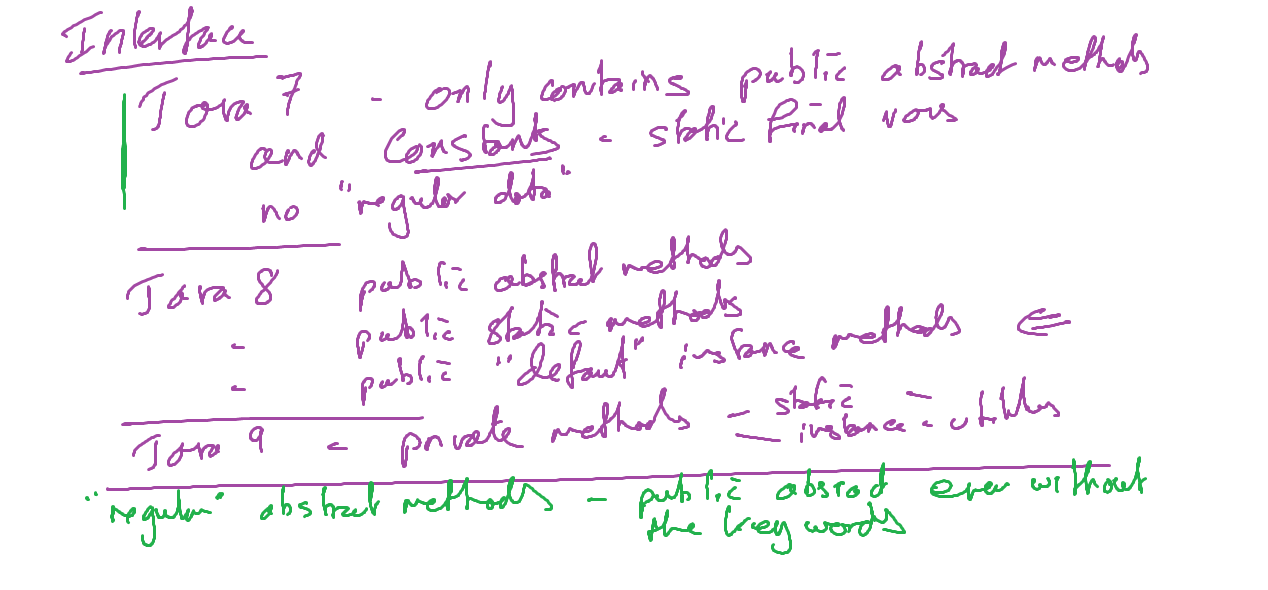 Interface
Java 7 - only contains public abstract methods
and Constants - static final vars
no "regular data"
Java 8 public abstract methods
- public static methods
- public "defaut" instance methods ⇐
Java 9 - private methods - static -
- instance - utilities
"regular" abstract methods - public abstract even without
the key words